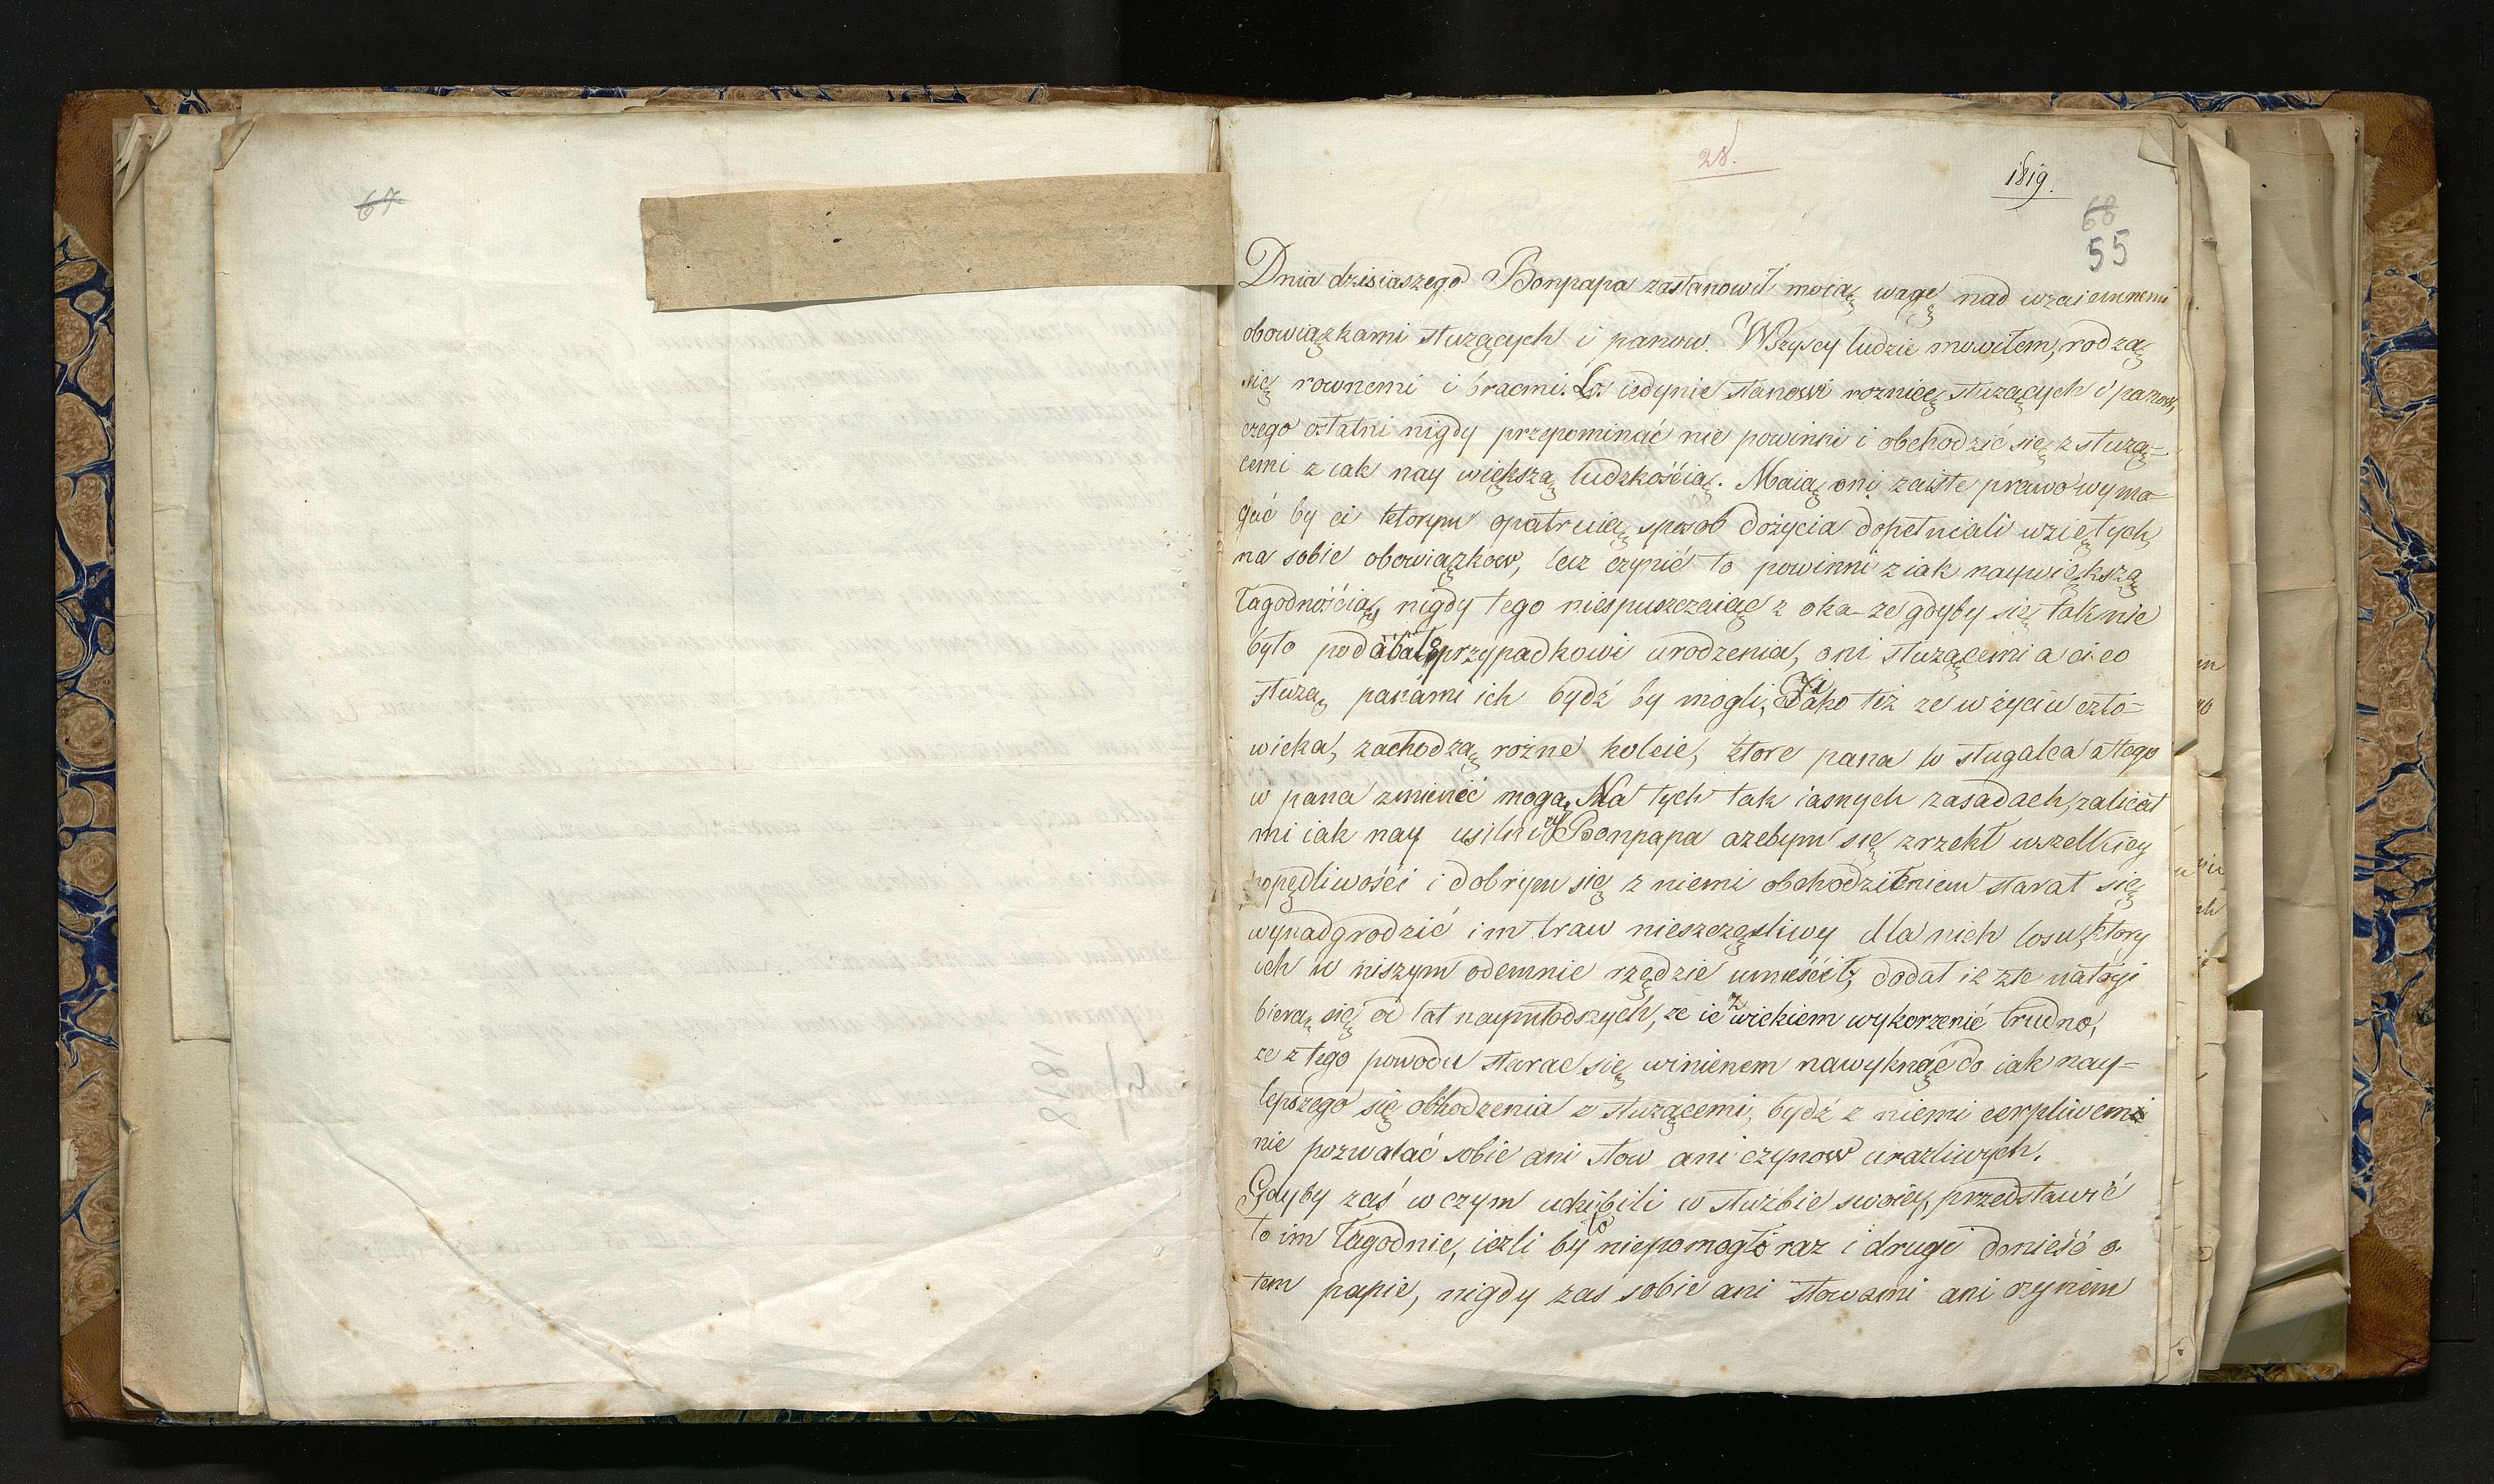 67
28.
1819.
68
55
Dnia dzisiaszego Bonpapa zastanowił moią wagę nad wzaiemnemi
obowiązkami służących i panow. Wszyscy ludzie mowiłem, rodzą
się rownemi i bracmi. Los iedynie stanowi roznicę służących i panow,
czego ostatni nigdy przepominać nie powinni i obchodzić się z służą-
cemi z iak nay większą ludzkośćią. Maią oni zaiste prawo wyma-
gać by ci ktorym opatruią sposob dożycia dopełniali wziętych
na sobie obowiązkow, lecz czynić to powinni z iak naywiększą
łagodnośćią, nigdy tego niespuszczaiąc z oka ze gdyby się tak nie
było podobało przypadkowi urodzenia, oni służącemi a ci co
służą panami ich bydź by mogli, Jako też ze w życiu czło-
wieka, zachodzą rożne koleie, ktore pana w sługalca a tego
w pana zmienić mogą. Na tych tak iasnych zasadach, zalicał
mi iak nay usilniey Bonpapa azebym się zrzekł wszelkiey
popędliwośći i dobrym się z niemi obchodzeniem starał się
wynadgrodzić im traw nieszczęsliwy dla nich losu, ktory
ich w niszym odemnie rzędzie umieśćił, dodał iż złe nałogi
bierą się od lat naymłodszych, ze ie z wiekiem wykorzenić trudno,
ze z tego powodu starac się winienem nawyknąć do iak nay-
lepszego się obhodzenia z służącemi, bydź z niemi cerpliwem
nie pozwalać sobie ani słow ani czynow uraźliwych.
Gdyby zaś w czym uchibili w służbie swoiey, przedstawić
to im łagodnie, iezli by to niepomogło raz i drugi dnieść o
tem papie, nigdy zaś sobie ani słowami ani czynem